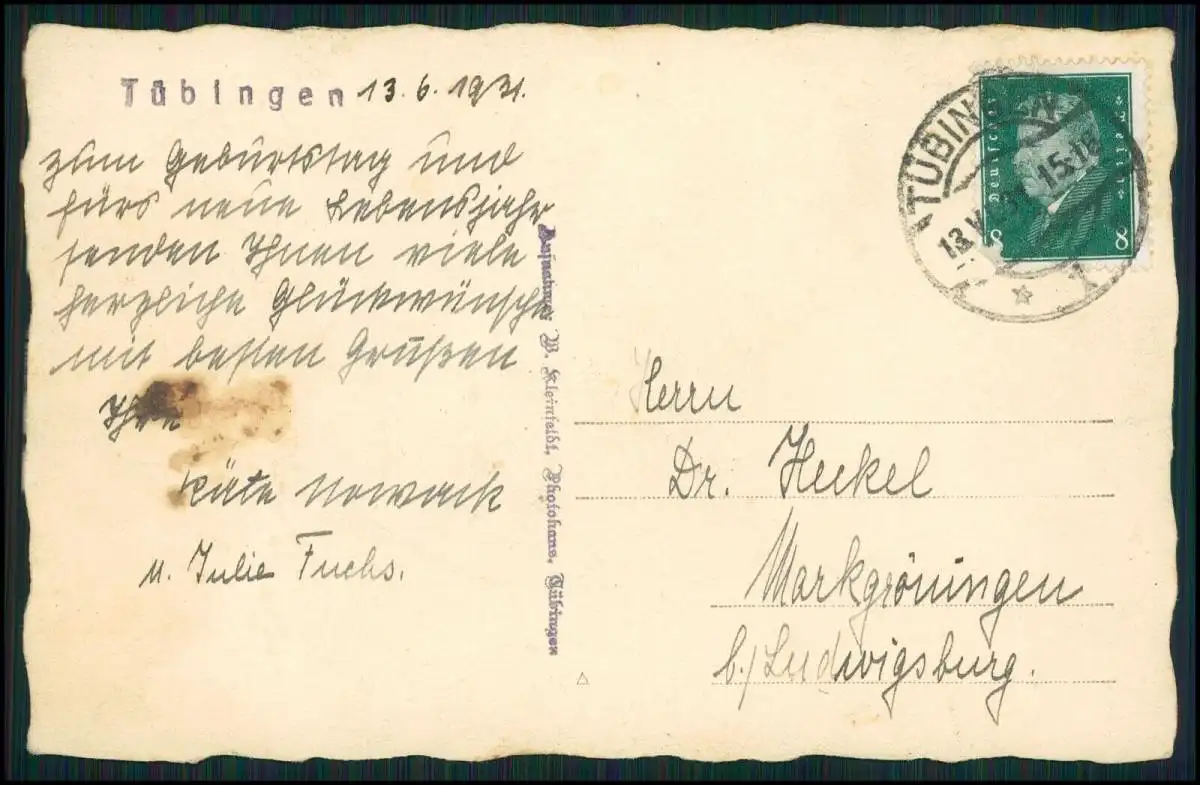 Tübingen 13.6.1931.
zum Geburtstag und
fürs neue Lebensjahr
senden Ihnen viele
herzliche Glückwünsche
mit besten Grüßen
Ihre
Käte Nowack
u. Julie Fuchs.
W. Kleinfeldt, Photohaus, Tübingen
TÜBINGEN
Deutsches Reich
8 8
Herrn
Dr. Heckel
Markgröningen
b./Ludwigsburg.